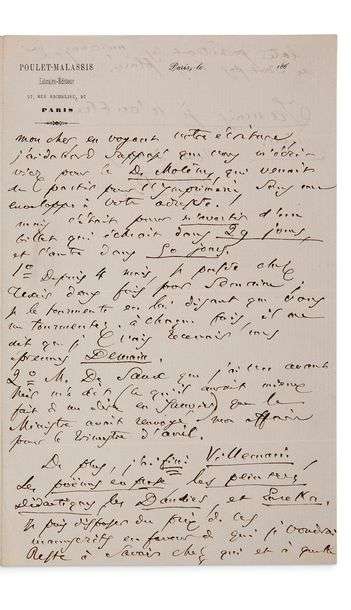 POULET-MALASSIS
Libraire-Éditeur
97, RUE RICHELIEU, 97
PARIS
Paris, le 186
mon cher, en voyant votre écriture,
j'ai d'abord supposé que vous m'écri-
viez pour le De Molènes, qui venait
de partir pour l'imprimerie sous une
enveloppe à votre adresse.
mais c'était pour m'avertir d'un
billet qui échoit dans 29 jours,
et l'autre dans 50 jours.
1º Depuis 4 mois, je passe chez
deux fois par semaine,
je le tourmente en lui disant que vous
me tourmentez. à chaque fois il me
dit que
Demain.
2º M. De Saux que j'ai vu avant
hier m'a dit (ce qu'il aurait mieux
fait de me dire en Janvier) que le
Ministre avait renvoyé mon affaire
pour le trimestre d'avril.
De plus, j'ai fini Villemain,
Les poëmes en prose, les peintres,
didactiques, les Dandies et Eureka.
Je puis disposer du prix de ces
manuscrits en faveur de qui je voudrai
Reste à savoir chez qui et à quelle